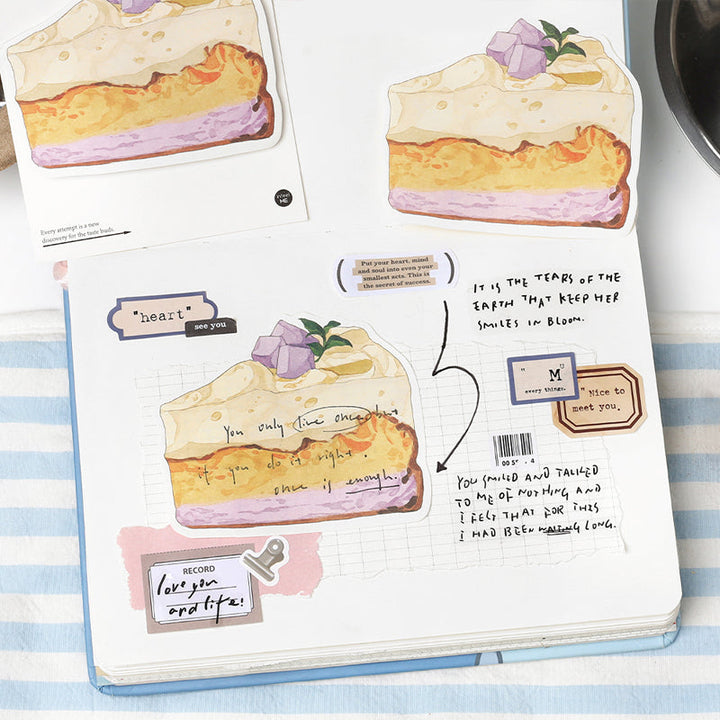 Every attempt is a new
discovery for the taste buds.
Put your heart, mind
and soul into even your
smallest acts. This is
the secret of success.
"heart"
see you
IT IS THE TEARS OF THE
EARTH THAT KEEP HER
SMILES IN BLOOM.
" M
every things.
" Nice to
meet you.
You only live once, but
if you do it right.
once is enough.
YOU SMILED AND TALKED
TO ME OF NOTHING AND
I FELT THAT FOR THIS
I HAD BEEN WAITING LONG.
RECORD
love you
and life!